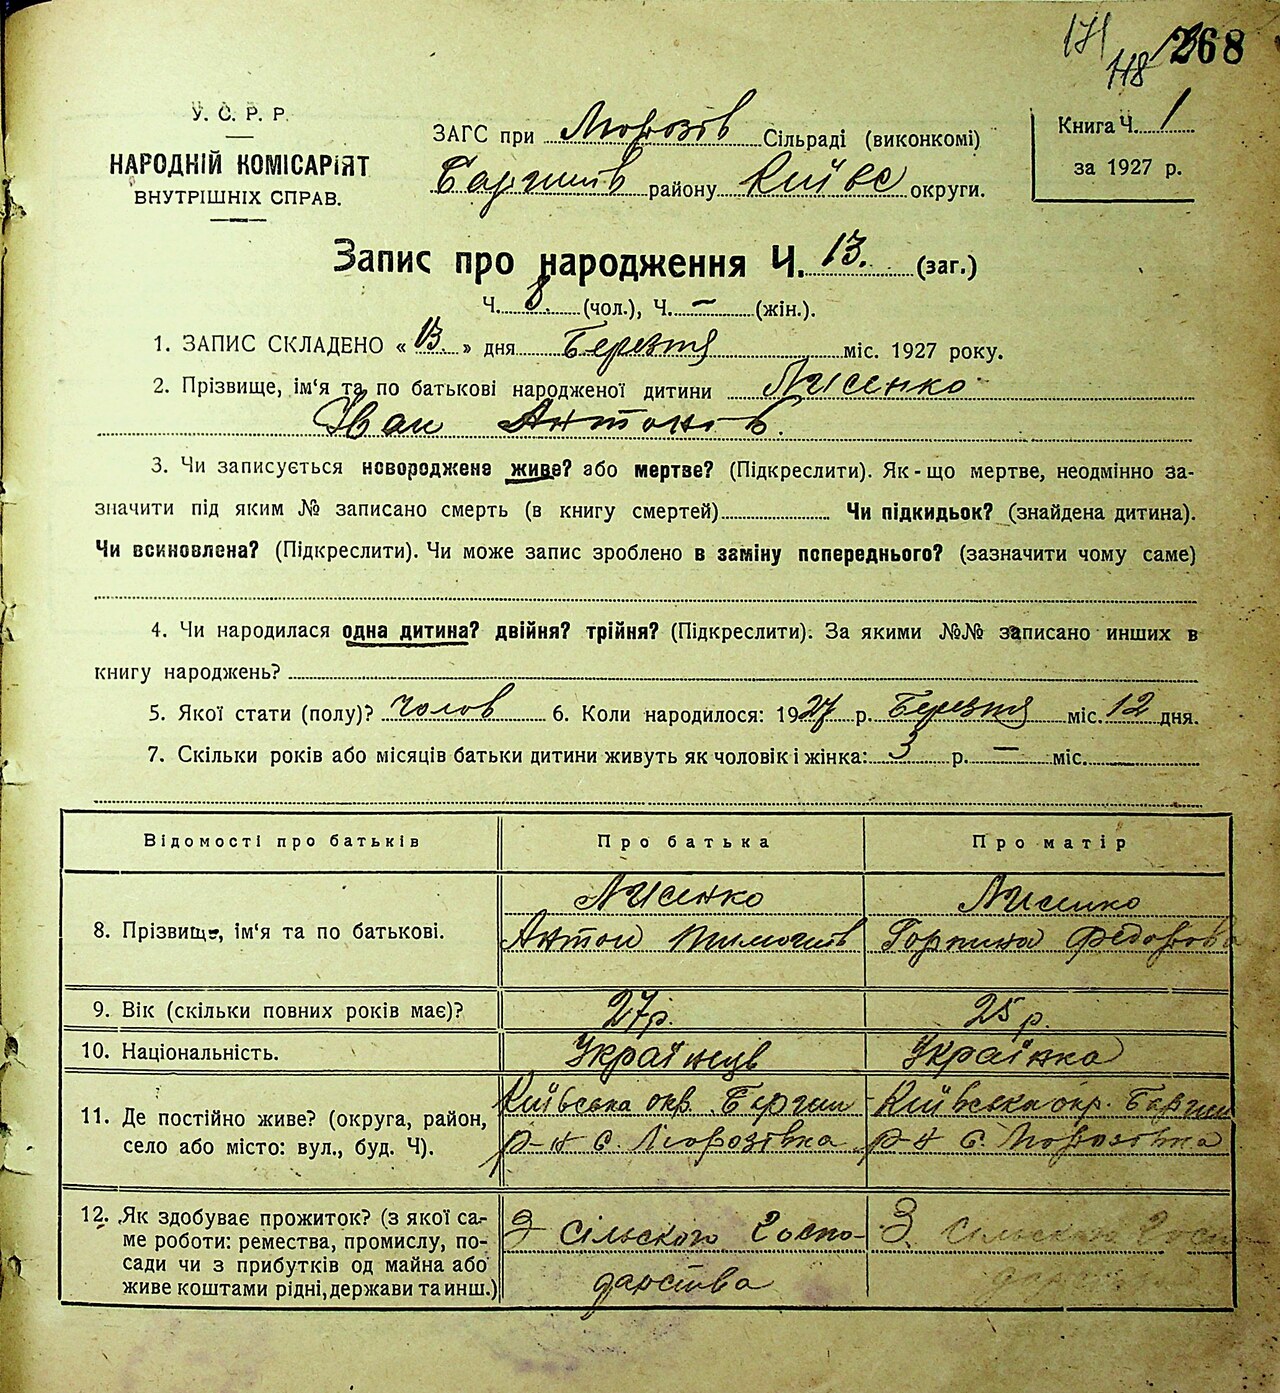 171
118
268
У. С. Р. Р.
НАРОДНІЙ КОМІСАРІЯТ
ВНУТРІШНІХ СПРАВ.
ЗАГС при Морозів Сільраді (виконкомі)
Баришів району Київс округи.
Книга Ч. 1
за 1927 р.
Запис про народження Ч. 13. (заг.)
Ч. 8 (чол.), Ч. – (жін.).
1. ЗАПИС СКЛАДЕНО « 13. » дня Березня міс. 1927 року.
2. Прізвище, ім'я та по батькові народженої дитини Лисенко
Іван Антонов.
3. Чи записується новороджене живе? або мертве? (Підкреслити). Як-що мертве, неодмінно за-
значити під яким № записано смерть (в книгу смертей) Чи підкидьок? (знайдена дитина).
Чи всиновлена? (Підкреслити). Чи може запис зроблено в заміну попереднього? (зазначити чому саме)
4. Чи народилася одна дитина? двійня? трійня? (Підкреслити). За якими №№ записано инших в
книгу народжень?
5. Якої стати (полу)? чолов 6. Коли народилося: 1927 р. Березня міс. 12 дня.
7. Скільки років або місяців батьки дитини живуть як чоловік і жінка: 3 р. – міс.
Відомості про батьків Про батька Про матір
8. Прізвище, ім'я та по батькові.
Лисенко
Антон Тимошів
Лисенко
Горпина Федорова
9. Вік (скільки повних років має)? 27 р. 25 р.
10. Національність. Українець Українка
11. Де постійно живе? (округа, район,
село або місто: вул., буд. Ч).
Київська окр. Баришн
р-н с. Морозівка
Київська окр. Баришн
р-н с. Морозовка
12. Як здобуває прожиток? (з якої са-
ме роботи: ремества, промислу, по-
сади чи з прибутків од майна або
живе коштами рідні, держави та инш.)
З сільского госпо-
дарства
З сільского госпо